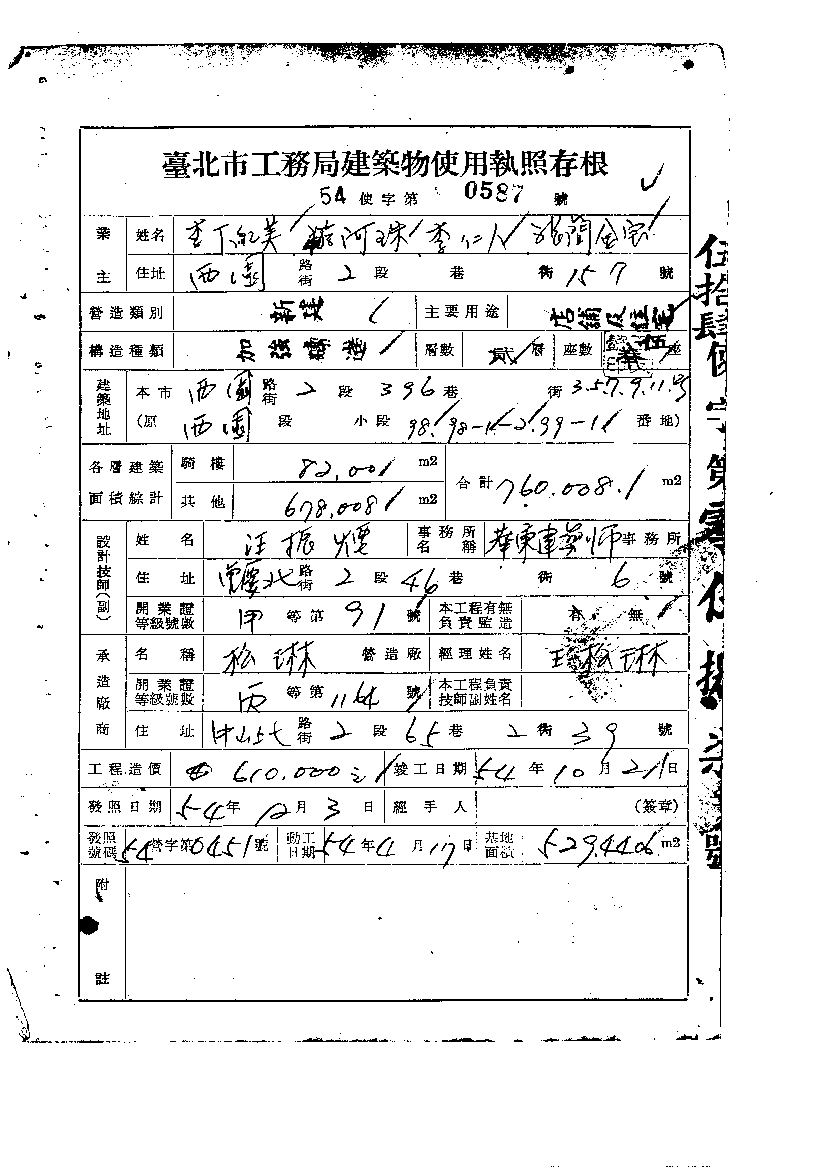 臺北市工務局建築物使用執照存根
54 使字第 0587 號
業主 姓名 李仁人
住址 西園 路街 2 段 巷 街 157 號
營造類別 新建 主要用途 店舖及住宅
構造種類 加強磚造 層數 貳 層 座數 伍 座
建築地址 本市 西園 路街 2 段 396 巷 街 3.5.7.9.11號
(原 西園 段 小段 98.98-1-2.99-1 番地)
各層建築面積綜計 騎樓 82.00 m2 合計 760.008 m2
其他 678.008 m2
設計技師(副) 姓名 汪振 事務所名稱 華東建築師 事務所
住址 重慶北 路街 2 段 46 巷 街 6 號
開業證等級號數 甲 等第 91 號 本工程有無負責監造 有 無
承造廠商 名稱 松琳 營造廠 經理姓名 松琳
開業證等級號數 丙 等第 1164 號 本工程負責技師副姓名
住址 中山北 路街 2 段 65 巷 2 街 39 號
工程造價 610.000元 竣工日期 54 年 10 月 21 日
發照日期 54 年 12 月 3 日 經手人 (簽章)
發照號碼 54 營字第 0451 號 動工日期 54 年 4 月 17 日 基地面積 529.4406 m2
附註
伍拾肆使字第零伍捌柒號